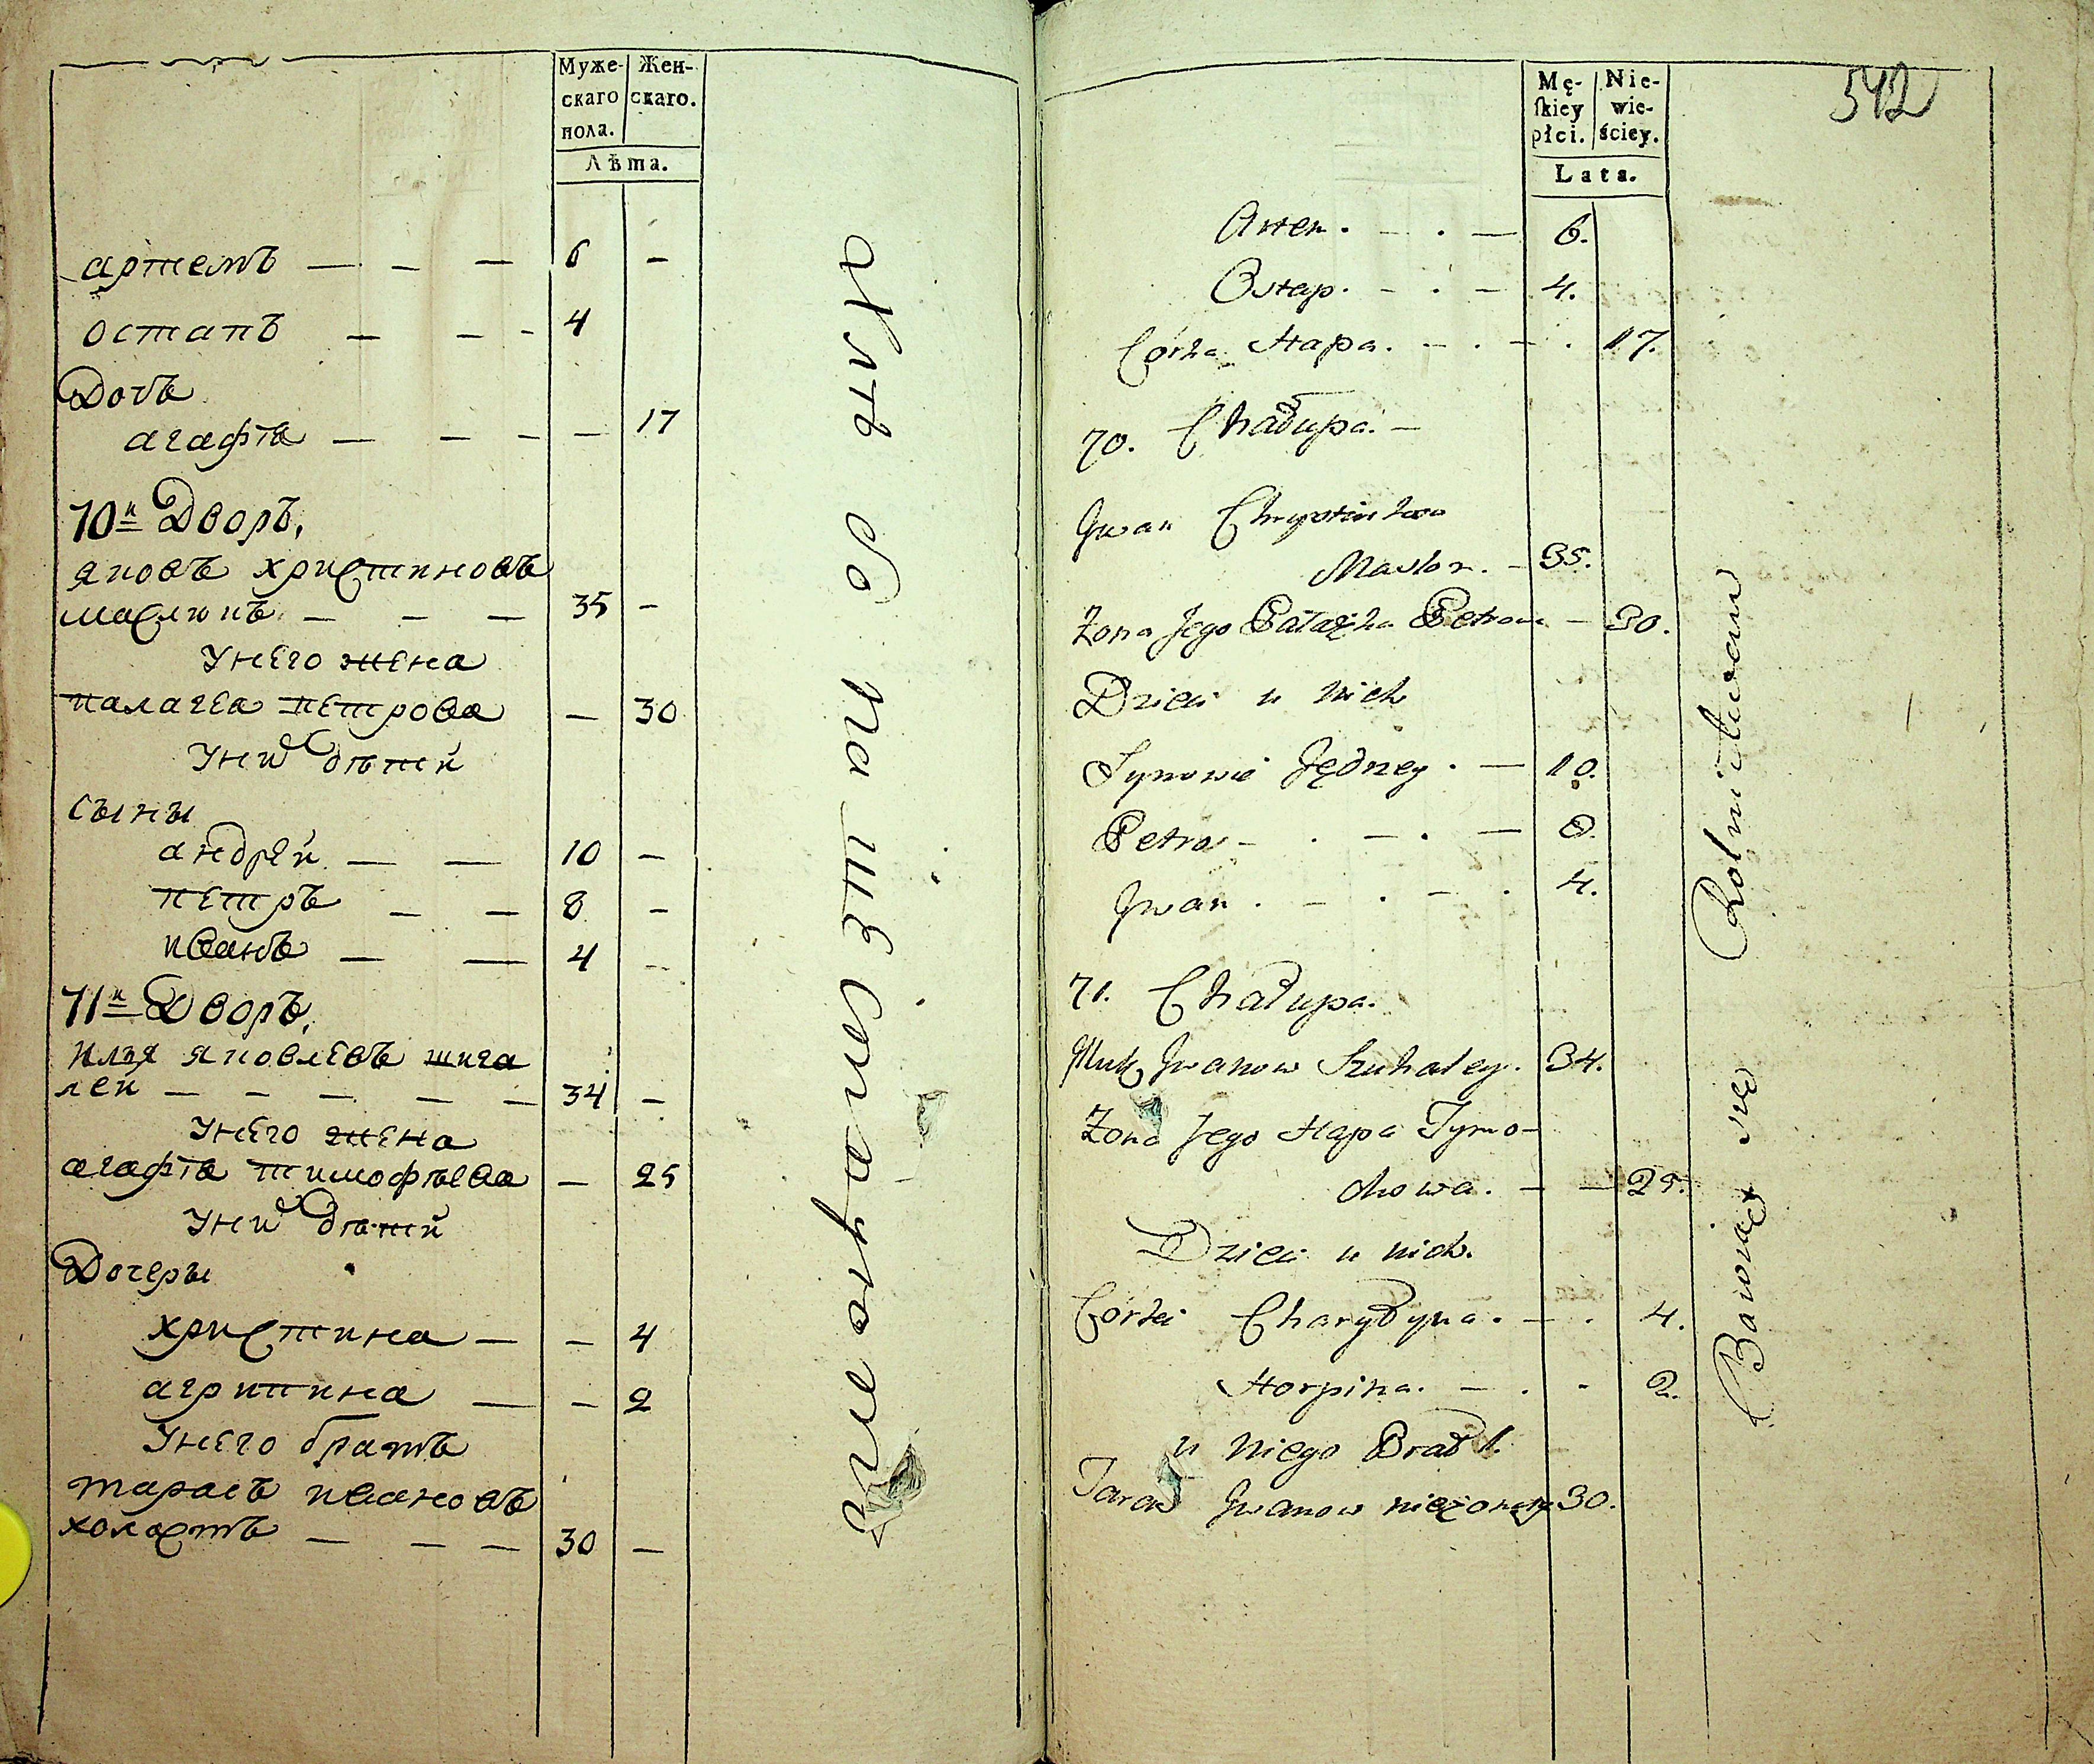 Муже-
скаго
пола.
Жен-
скаго.
Лѣта.
артемъ — — — 6 —
остапъ — — - 4
Дочь
агафія — — - — 17
70й Дворъ,
яковъ христиновъ
маслюкъ — — — 35 —
Унего жена
палагеа петрова — 30
Уних дѣтей
сыны
андрей — — 10 —
петръ — — 8 —
иванъ — — 4 —
71й Дворъ,
илья яковлевъ шига
лей — - — — — 34 —
Унего жена
агафія тимофѣева — 25
Уних дѣтей
Дочеры
христина — — 4
агрипина — — 2
Унего братъ
тарасъ ивановъ
холостъ — — — 30 —
Mę-
skiey
płci.
Nie-
wie-
ściey.
Lata.
542
Artem. - . — 6.
Ostap. - . — 4.
Córka Hapa. - . - . 17.
70. Chałupa. —
Jwan
35.
Żona Jego Pałażka Petrowa — 30.
Dzieci u nich
Synowie Jędrzey . — 10.
Petro - . — . — 8.
Jwan . - . - . 4.
71. Chałupa.
Jwanow Szuhaley. 34.
Żona Jego Hapa Tymo-
chowa. — — 25.
Dzieci u nich.
Córki Charytyna. — . 4.
Horpina. — . - 2.
u niego Brat 1.
Taras Jwanow nieżonaty 30.
Bawiąc się Rolnictwem